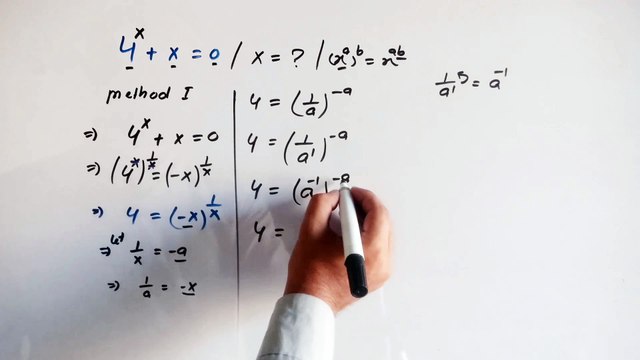 4^x + x = 0 / x = ? / (x^a)^b = x^ab
method I
⇒ 4^x + x = 0
⇒ (4^x)^1/x = (-x)^1/x
⇒ 4 = (-x)^1/x
⇒ let 1/x = -a
⇒ 1/a = -x
4 = (1/a)^-a
4 = (1/a^1)^-a
4 = (a^-1)^-a
4 =
= a^-1